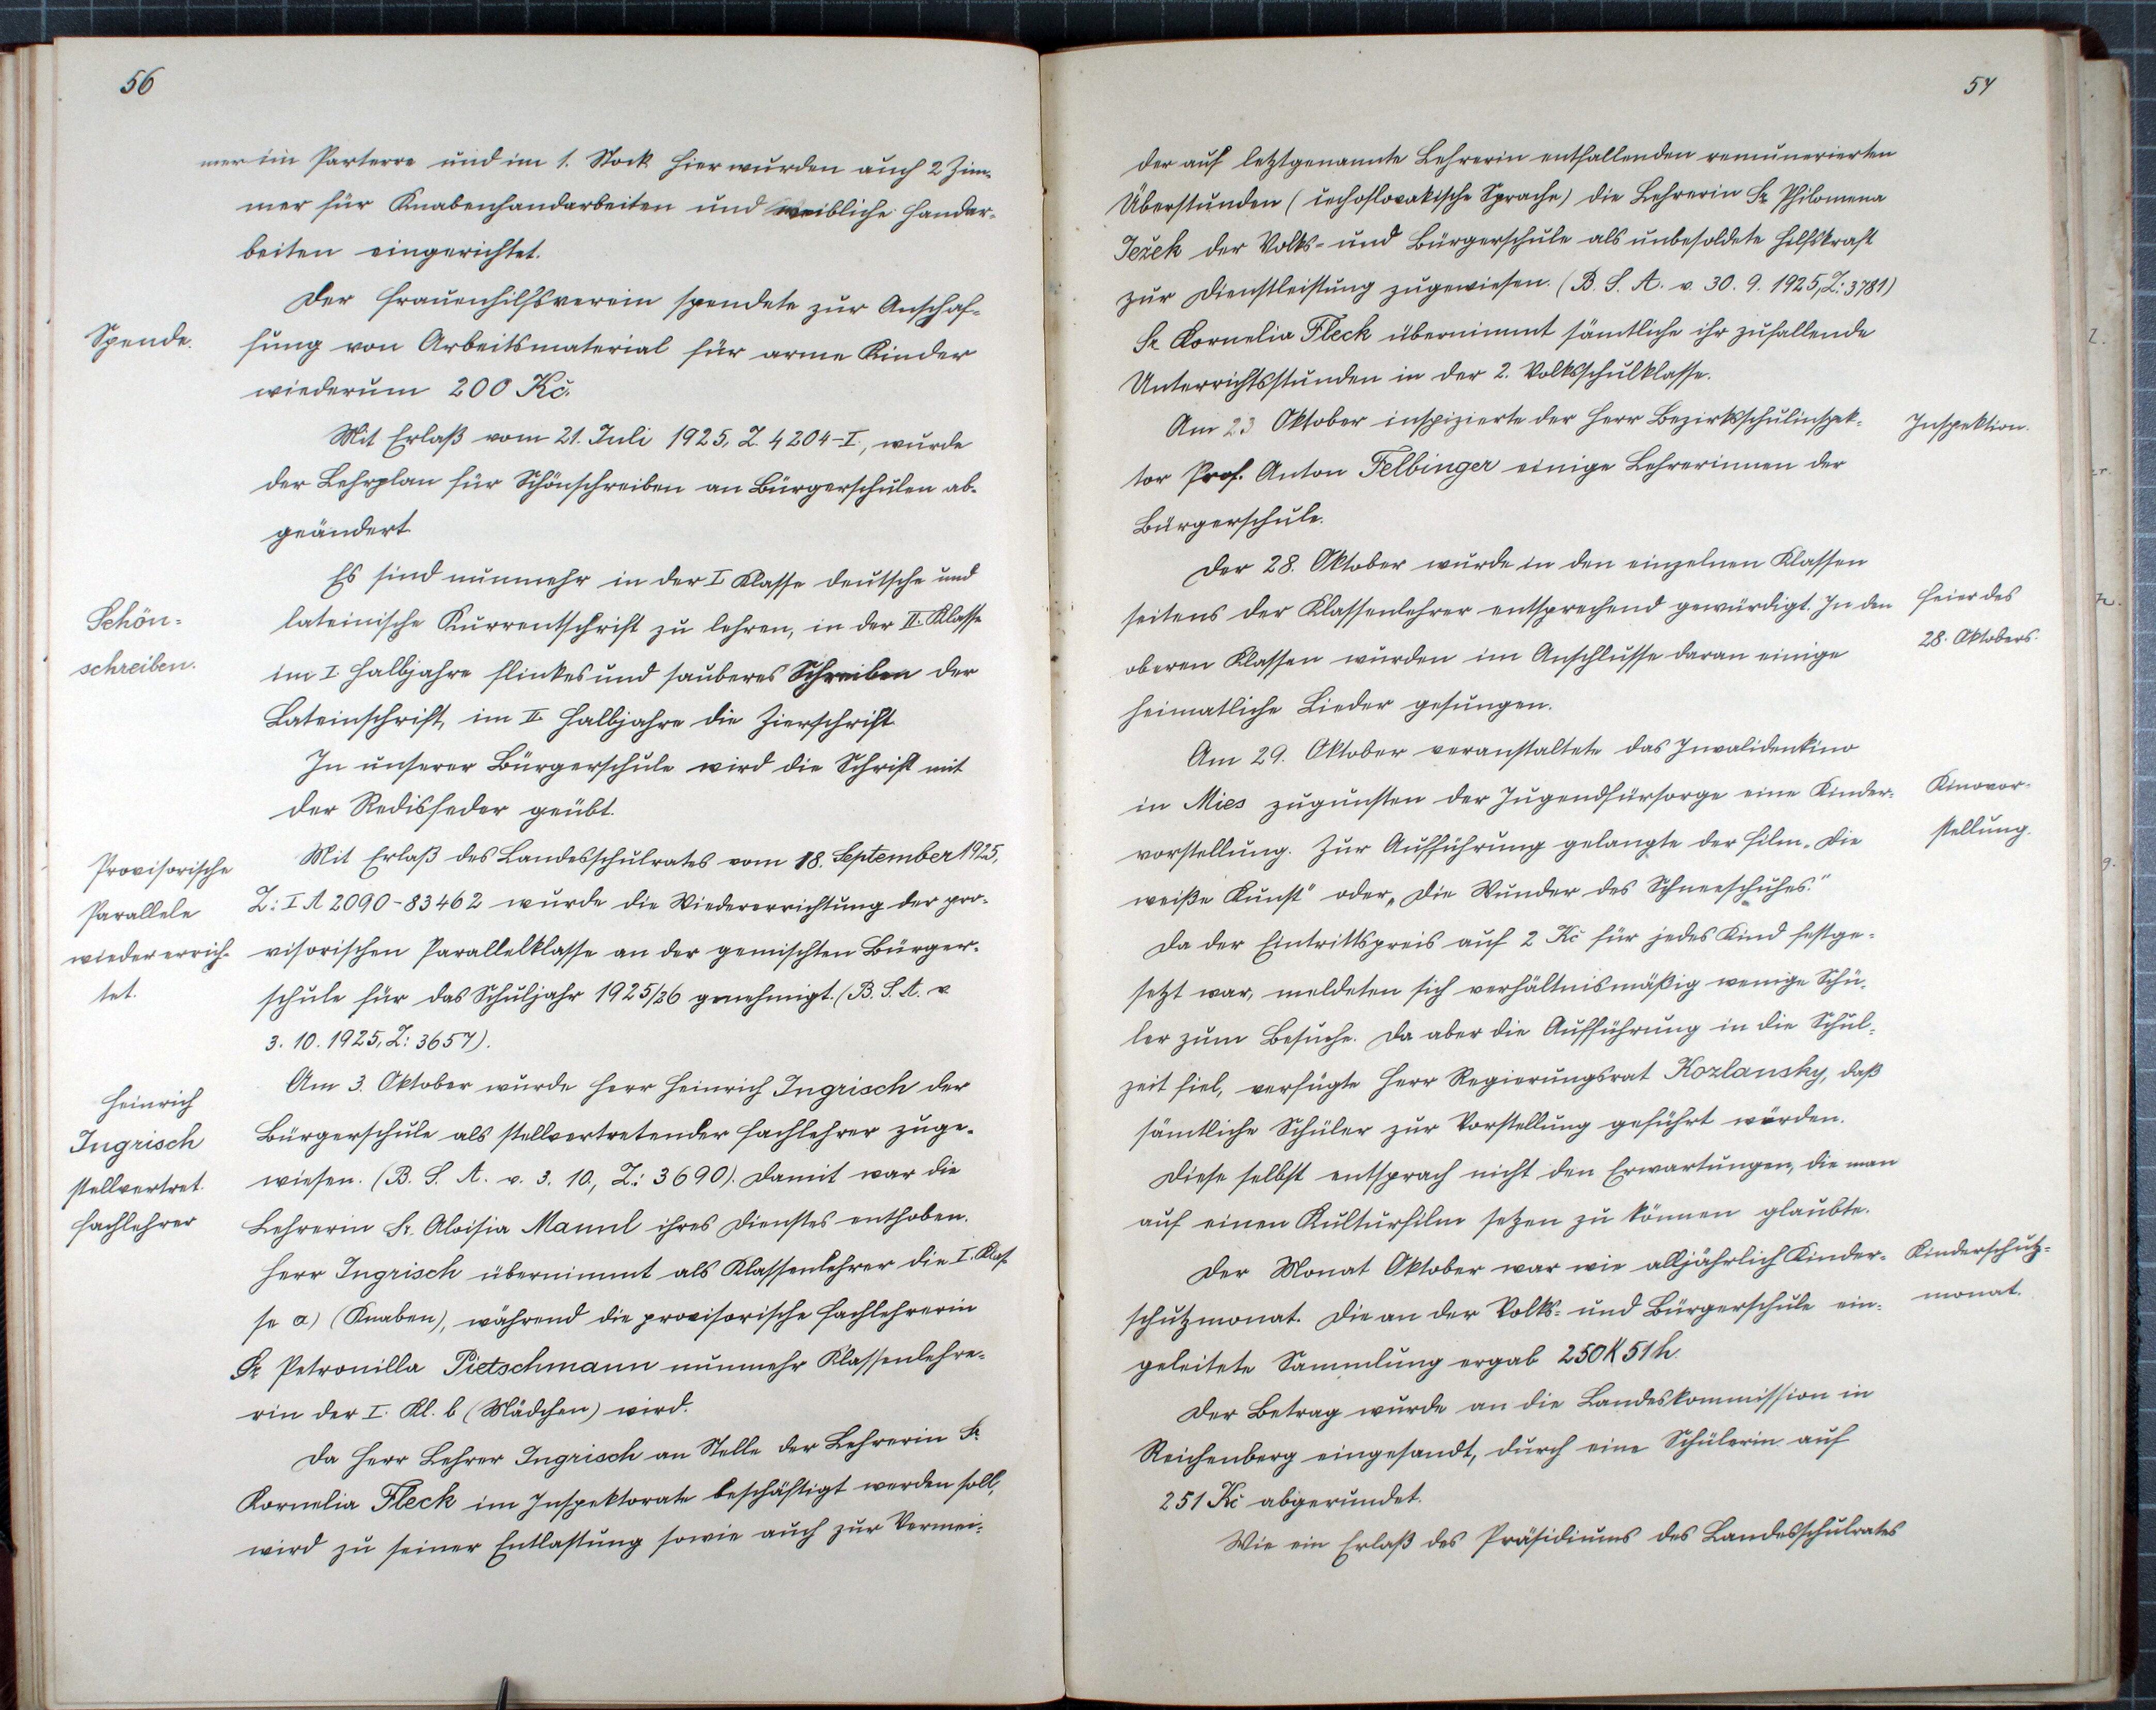 56
mer im Parterre und im 1. Stock hier wurden auch 2 Zim-
mer für Knabenhandarbeiten und weibliche Handar-
beiten eingerichtet.
Der Frauenhilfsverein spendete zur Anschaf-
Spende.
fung von Arbeitsmaterial für arme Kinder
wiederum 200 Kč.
Mit Erlaß vom 21. Juli 1925, Z. 4204-I., wurde
der Lehrplan für Schönschreiben an Bürgerschulen ab-
geändert.
Es sind nunmehr in der I. Klasse deutsche und
Schön-
schreiben.
lateinische Kurrentschrift zu lehren, in der II. Klasse
im I. Halbjahre flinkes und sauberes Schreiben der
Lateinschrift, im II. Halbjahre die Zierschrift.
In unserer Bürgerschule wird die Schrift mit
der Redisfeder geübt.
Provisorische
Parallele
wiedererrich-
tet.
Mit Erlaß des Landesschulrates vom 18. September 1925,
Z: I A 2090-83462 wurde die Wiedererrichtung der pro-
visorischen Parallelklasse an der gemischten Bürger-
schule für das Schuljahr 1925/26 genehmigt. (B. S. A. v.
3. 10. 1925, Z: 3657).
Heinrich
Ingrisch
stellvertret.
Fachlehrer
Am 3. Oktober wurde Herr Heinrich Ingrisch der
Bürgerschule als stellvertretender Fachlehrer zuge-
wiesen. (B. S. A. v. 3. 10., Z: 3690). Damit war die
Lehrerin Sr. Aloisia Mannl ihres Dienstes enthoben.
Herr Ingrisch übernimmt als Klassenlehrer die I. Klas-
se a) (Knaben), während die provisorische Fachlehrerin
Sr. Petronilla Pietschmann nunmehr Klassenlehre-
rin der I. Kl. b (Mädchen) wird.
Da Herr Lehrer Ingrisch an Stelle der Lehrerin Sr.
Kornelia Fleck im Inspektorate beschäftigt werden soll,
wird zu seiner Entlastung sowie auch zur Vermei-
57
der auf letztgenannte Lehrerin entfallenden remunerierten
Überstunden (čechoslovakische Sprache) die Lehrerin Sr. Philomena
Ježek der Volks- und Bürgerschule als unbesoldete Hilfskraft
zur Dienstleistung zugewiesen. (B. S. A. v. 30. 9. 1925, Z: 3781)
Sr. Kornelia Fleck übernimmt sämtliche ihr zufallende
Unterrichtsstunden in der 2. Volksschulklasse.
Am 23. Oktober inspizierte der Herr Bezirksschulinspek-
Inspektion.
tor Prof. Anton Felbinger einige Lehrerinnen der
Bürgerschule.
Der 28. Oktober wurde in den einzelnen Klassen
seitens der Klassenlehrer entsprechend gewürdigt. In den
Feier des
28. Oktobers.
oberen Klassen wurden im Anschlusse daran einige
heimatliche Lieder gesungen.
Am 29. Oktober veranstaltete das Invalidenkino
in Mies zugunsten der Jugendfürsorge eine Kinder-
Kinovor-
stellung.
vorstellung. Zur Aufführung gelangte der Film „Die
weiße Kunst" oder „Die Wunder des Schneeschuhes."
Da der Eintrittspreis auf 2 Kč für jedes Kind festge-
setzt war, meldeten sich verhältnismäßig wenige Schü-
ler zum Besuche. Da aber die Aufführung in die Schul-
zeit fiel, verfügte Herr Regierungsrat Kozlansky, daß
sämtliche Schüler zur Vorstellung geführt würden.
Diese selbst entsprach nicht den Erwartungen, die man
auf einen Kulturfilm setzen zu können glaubte.
Der Monat Oktober war wie alljährlich Kinder-
Kinderschutz-
monat.
schutzmonat. Die an der Volks- und Bürgerschule ein-
geleitete Sammlung ergab 250 K 51 h.
Der Betrag wurde an die Landeskommission in
Reichenberg eingesandt, durch eine Schülerin auf
251 Kč abgerundet.
Wie ein Erlaß des Präsidiums des Landesschulrates